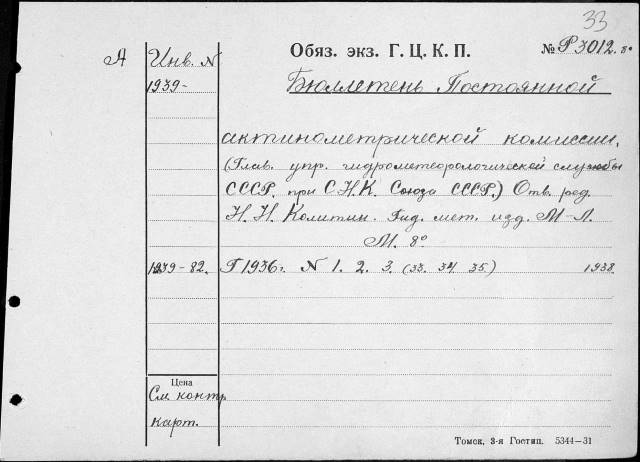 33
А Инв. N Обяз. экз. Г. Ц. К. П. № Р3012.8°
1939- Бюллетень Постоянной
актинометрической комиссии.
(Глав. упр. гидрометеорологической службы
СССР. при С.Н.К. Союза СССР.) Отв. ред.
Н. Н. Калитин. Гид. мет. изд. М-Л.
М. 8°
1939-82. Г 1936г. N 1. 2. 3. (33. 34. 35.) 1938.
Цена
См. контр.
карт.
Томск, 3-я Гостип. 5344—31